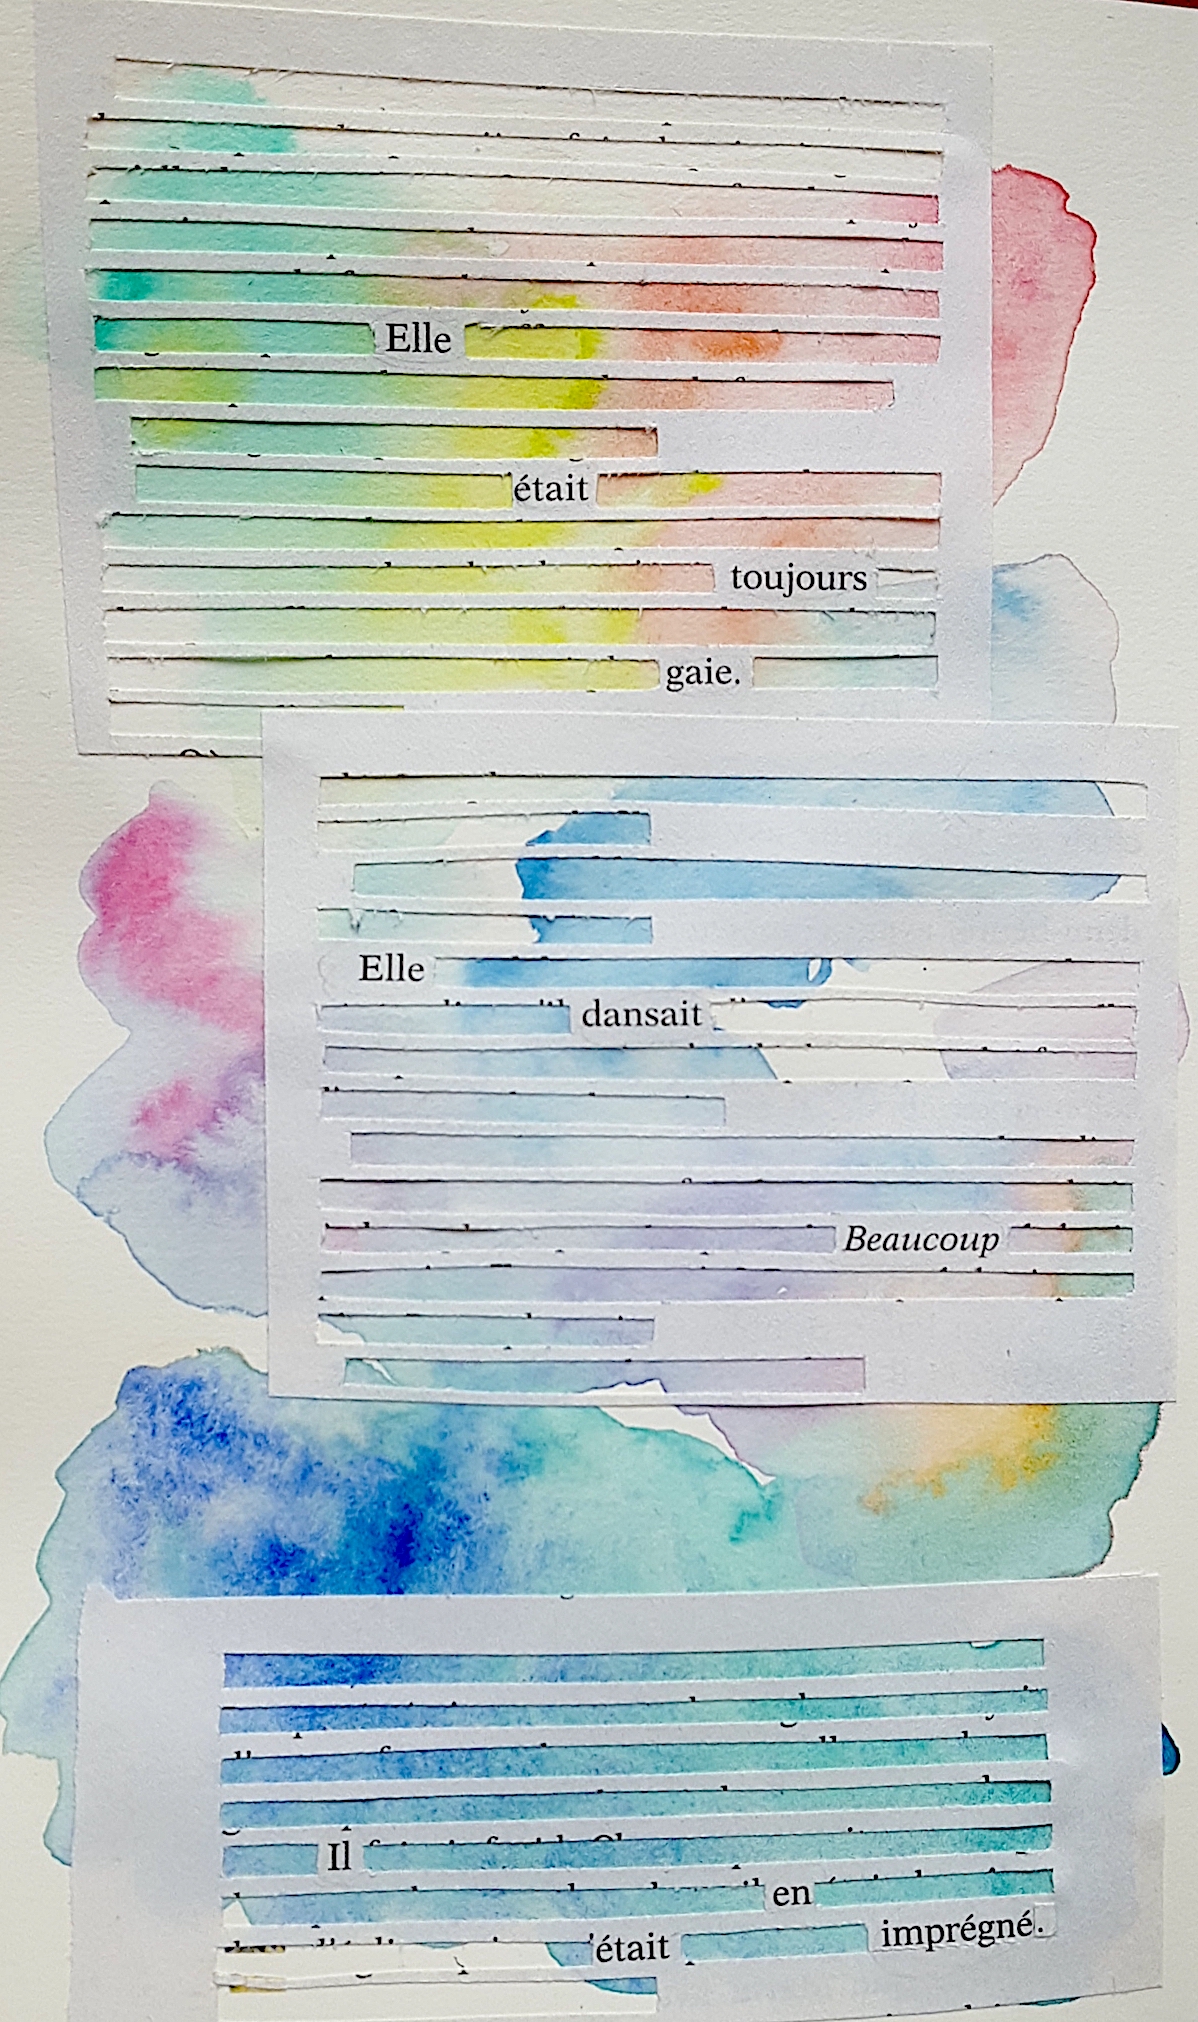 Elle
était
toujours
gaie.
Elle
dansait
Beaucoup
Il
en
était imprégné.